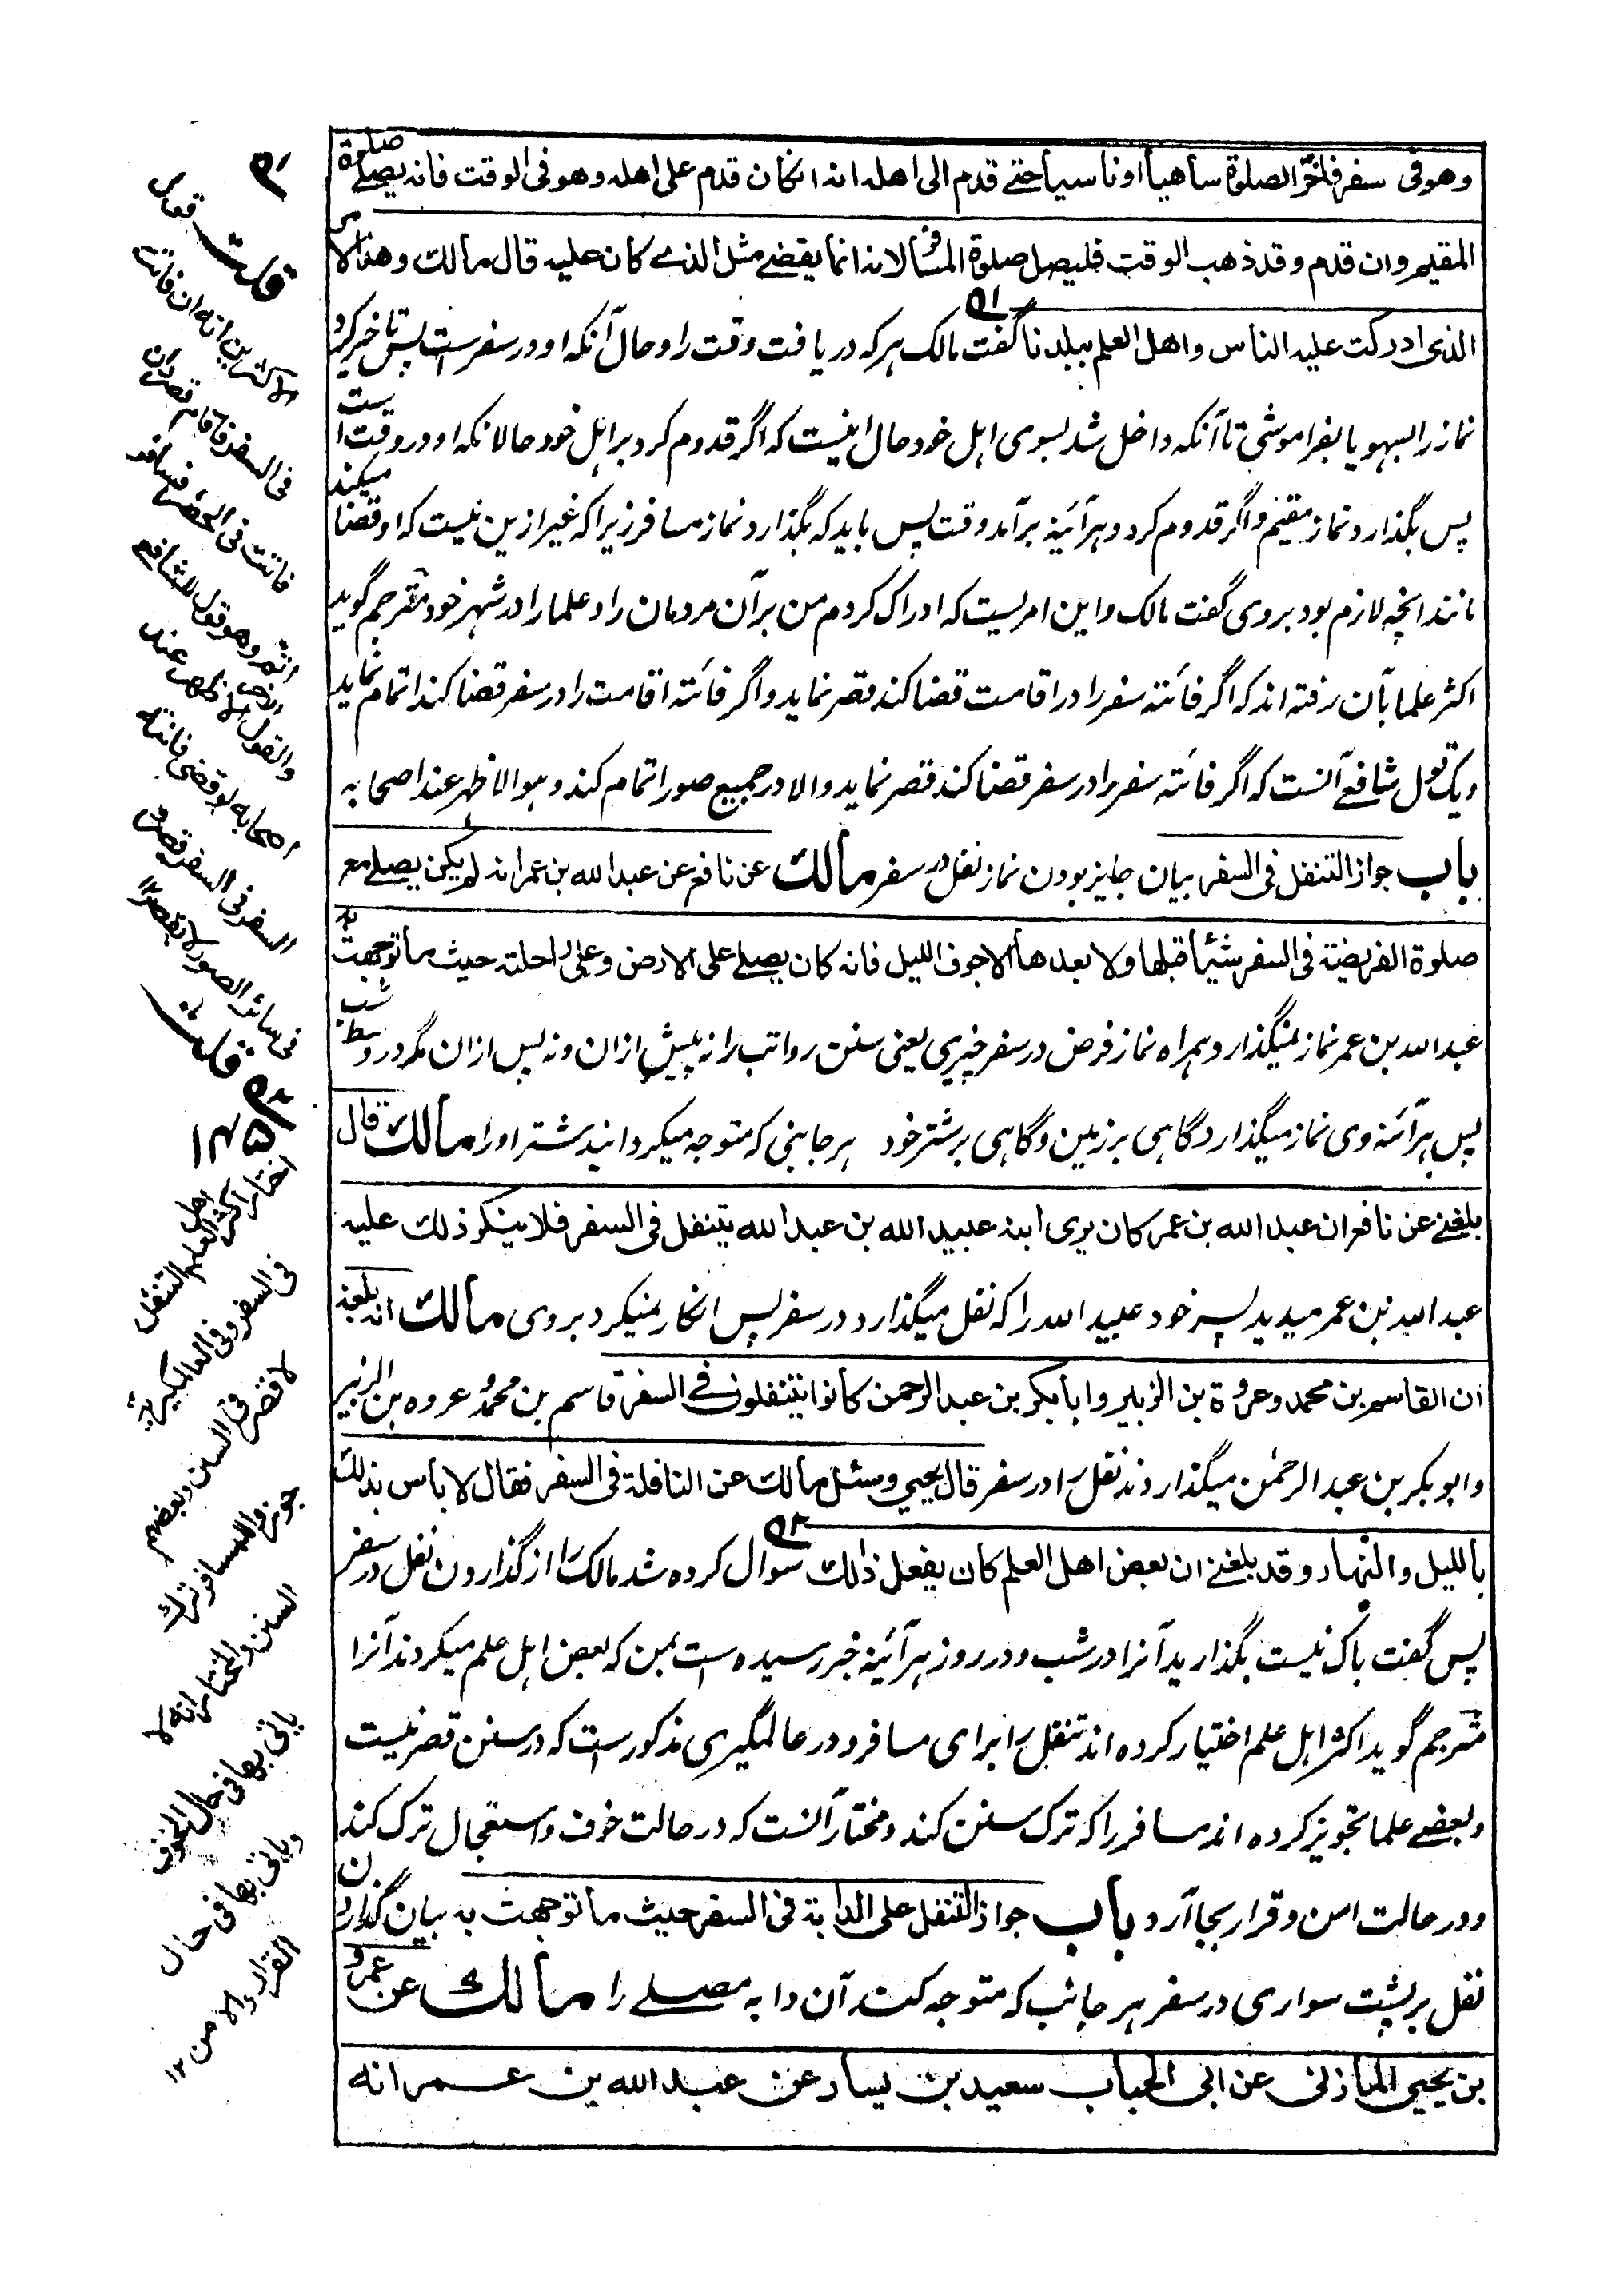 وهو فى سفر فاخّر الصلوة ساهياً او ناسياً حتے قدم الى اهله انه ان كان قدم على اهله وهو فى الوقت فانه يصلے صلوة
المقيم وان قدم وقد ذهب الوقت فليصل صلوة المسافر لانه انما يقضے مثل الذے كان عليه قال مالك وهذا الامر
الذى ادركت عليه الناس واهل العلم ببلدنا گفت مالک ہر کہ دریافت وقت را و حال آنکہ او در سفر ست پس تاخیر کرد
نماز را بسہو یا بفراموشی تا آنکہ داخل شد بسوی اہل خود حال اینست کہ اگر قدوم کرد بر اہل خود حالانکہ او در وقت است
پس بگذارد نماز مقیم و اگر قدوم کرد و ہر آئینہ برآمد وقت پس باید کہ بگذارد نماز مسافر زیرا کہ غیر ازین نیست کہ او قضا میکند
مانند انچہ لازم بود بر وی گفت مالک و این امریست کہ ادراک کردم من بر آن مردمان را و علما را در شہر خود مترجم گوید
اکثر علما بآن رفتہ اند کہ اگر فائتہ سفر را در اقامت قضا کند قصر نماید و اگر فائتہ اقامت را در سفر قضا کند اتمام نماید
و یک قول شافعے آنست کہ اگر فائتہ سفر را در سفر قضا کند قصر نماید و الا در جمیع صور اتمام کند و ہو الاظہر عند اصحابہ
باب جواز التنفل فى السفر بیان جایز بودن نماز نفل در سفر مالك عن نافع عن عبد الله بن عمر انه لم يكن يصلے مع
صلوة الفريضة فى السفر شيئا قبلها ولا بعدها الا جوف الليل فانه كان يصلے على الارض وعلى راحلته حيث ما توجهت به
عبد اللہ بن عمر نماز نمیگذارد ہمراہ نماز فرض در سفر چیزی یعنی سنت رواتب را نہ پیش ازان و نہ پس ازان مگر در وسط شب
پس ہر آئنہ وی نماز میگذارد گاہی بر زمین و گاہی بر شتر خود ہر جانبی کہ متوجہ میکردانید شتر او را مالك قال
بلغنے عن نافع ان عبد الله بن عمر كان يرى ابنه عبيد الله بن عبد الله يتنفل فى السفر فلا ينكر ذلك عليه
عبد اللہ بن عمر میدید پسر خود عبید اللہ را کہ نفل میگذارد در سفر پس انکار نمیکرد بر وی مالك انه بلغه
ان القاسم بن محمد وعروة بن الزبير وابا بكر بن عبد الرحمن كانوا يتنفلون فے السفر قاسم بن محمد و عروہ بن الزبیر
و ابو بکر بن عبد الرحمٰن میگذاردند نفل را در سفر قال يحيى وسئل مالك عن النافلة فى السفر فقال لا باس بذلك
بالليل والنهار وقد بلغنے ان بعض اهل العلم كان يفعل ذلك سوال کردہ شد مالک را از گذاردن نفل در سفر
پس گفت باک نیست بگذارید آنرا در شب و در روز ہر آئینہ خبر رسیدہ است بمن کہ بعض اہل علم میکردند آنرا
مترجم گوید اکثر اہل علم اختیار کردہ اند تنفل را برای مسافر و در عالمگیری مذکور است کہ در سنن قصر نیست
و بعضے علما تجویز کردہ اند مسافر را کہ ترک سنن کند و مختار آنست کہ در حالت خوف و استعجال ترک کند
و در حالت امن و قرار بجا آرد باب جواز التنفل على الدابة فى السفر حيث ما توجهت به بیان گذاردن
نفل بر پشت سواری در سفر ہر جانب کہ متوجہ کند آن دابہ مصلے را مالك عن عمرو
بن يحيى المازنى عن ابى الحباب سعيد بن يسار عن عبد الله بن عمر انه
قلت فعلى
الاكثرين انه ان فاتته
فى السفر فاقام قصر وان
فاتت فى الحضر فسافر
اتم وهو قول للشافعى
والقول الاظهر عند
اصحابه لو قضى فائتة
السفر فى السفر قصر و
فى سائر الصور لا يقصر ١٢
قلت
اختار اكثر اهل العلم التنفل
فى السفر وفى العالمكيرية
لا قصر فى السنن وبعضهم
جوزوا للمسافر ترك
السنن والمختار انه لا
ياتى بها فى حال الخوف
وياتى بها فى حال
القرار والامن ١٢